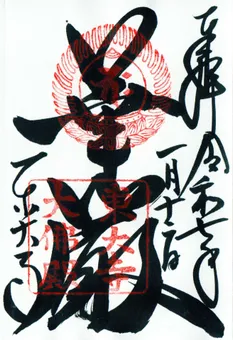 奉拝 令和七年
一月十二日
華厳
東大寺
大仏殿